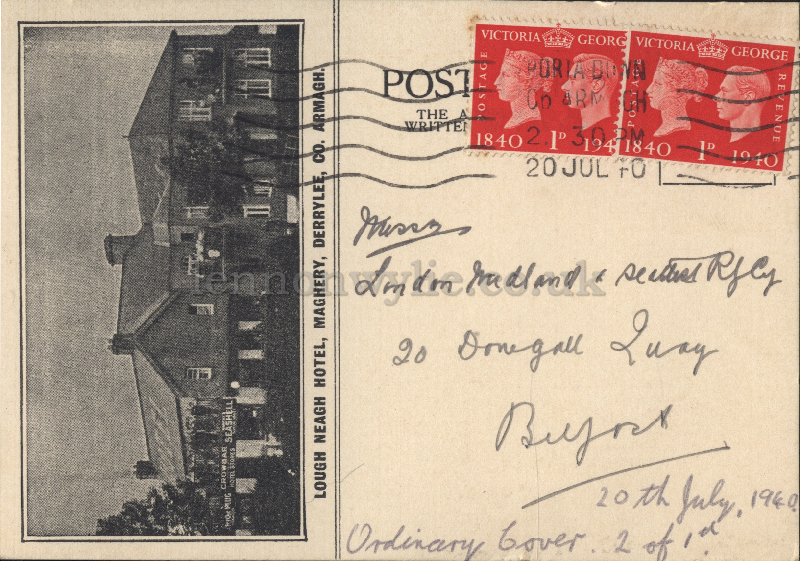 LOUGH NEAGH HOTEL, MAGHERY, DERRYLEE, CO. ARMAGH.
CROWBAR SEASHELL
HOTEL STORES
POST
THE A
WRITTEN
VICTORIA GEORG
POSTAGE
1840 1D 194
VICTORIA GEORGE
POSTAGE
REVENUE
1840 1D 1940
PORTADOWN
Co ARMAGH
2. 30 PM
20 JUL 40
Messrs
London Midland & Rly Cy
20 Donegall Quay
Belfast
20th July, 1940.
Ordinary Cover. 2 of 1d.
lennonwylie.co.uk